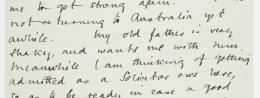 me to get strong again.
not returning to Australia yet
awhile. My old father is very
shaky, and wants me with him.
Meanwhile I am thinking of getting
admitted as a Solicitor over here,
so as to be ready in case a good